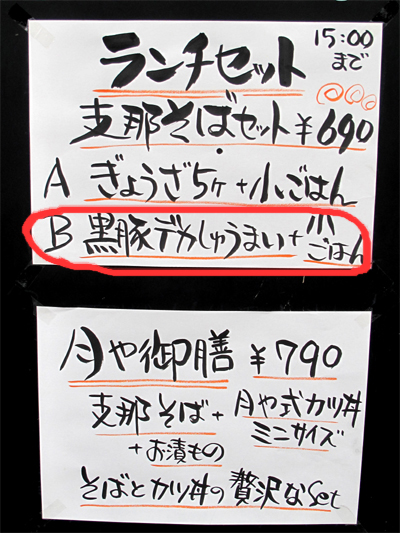 ランチセット 15:00まで
支那そばセット ¥690
A ぎょうざ5ヶ+小ごはん
B 黒豚デカしゅうまい+小ごはん
月や御膳 ¥790
支那そば+月や式カツ丼ミニサイズ
+お漬もの
そばとカツ丼の贅沢なset